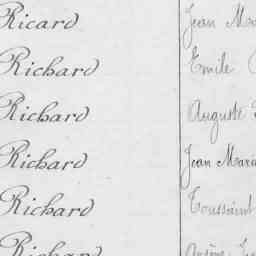 Ricard Jean Ma
Richard Emile
Richard Auguste
Richard Jean Marie
Richard Toussaint
Richard Arsène